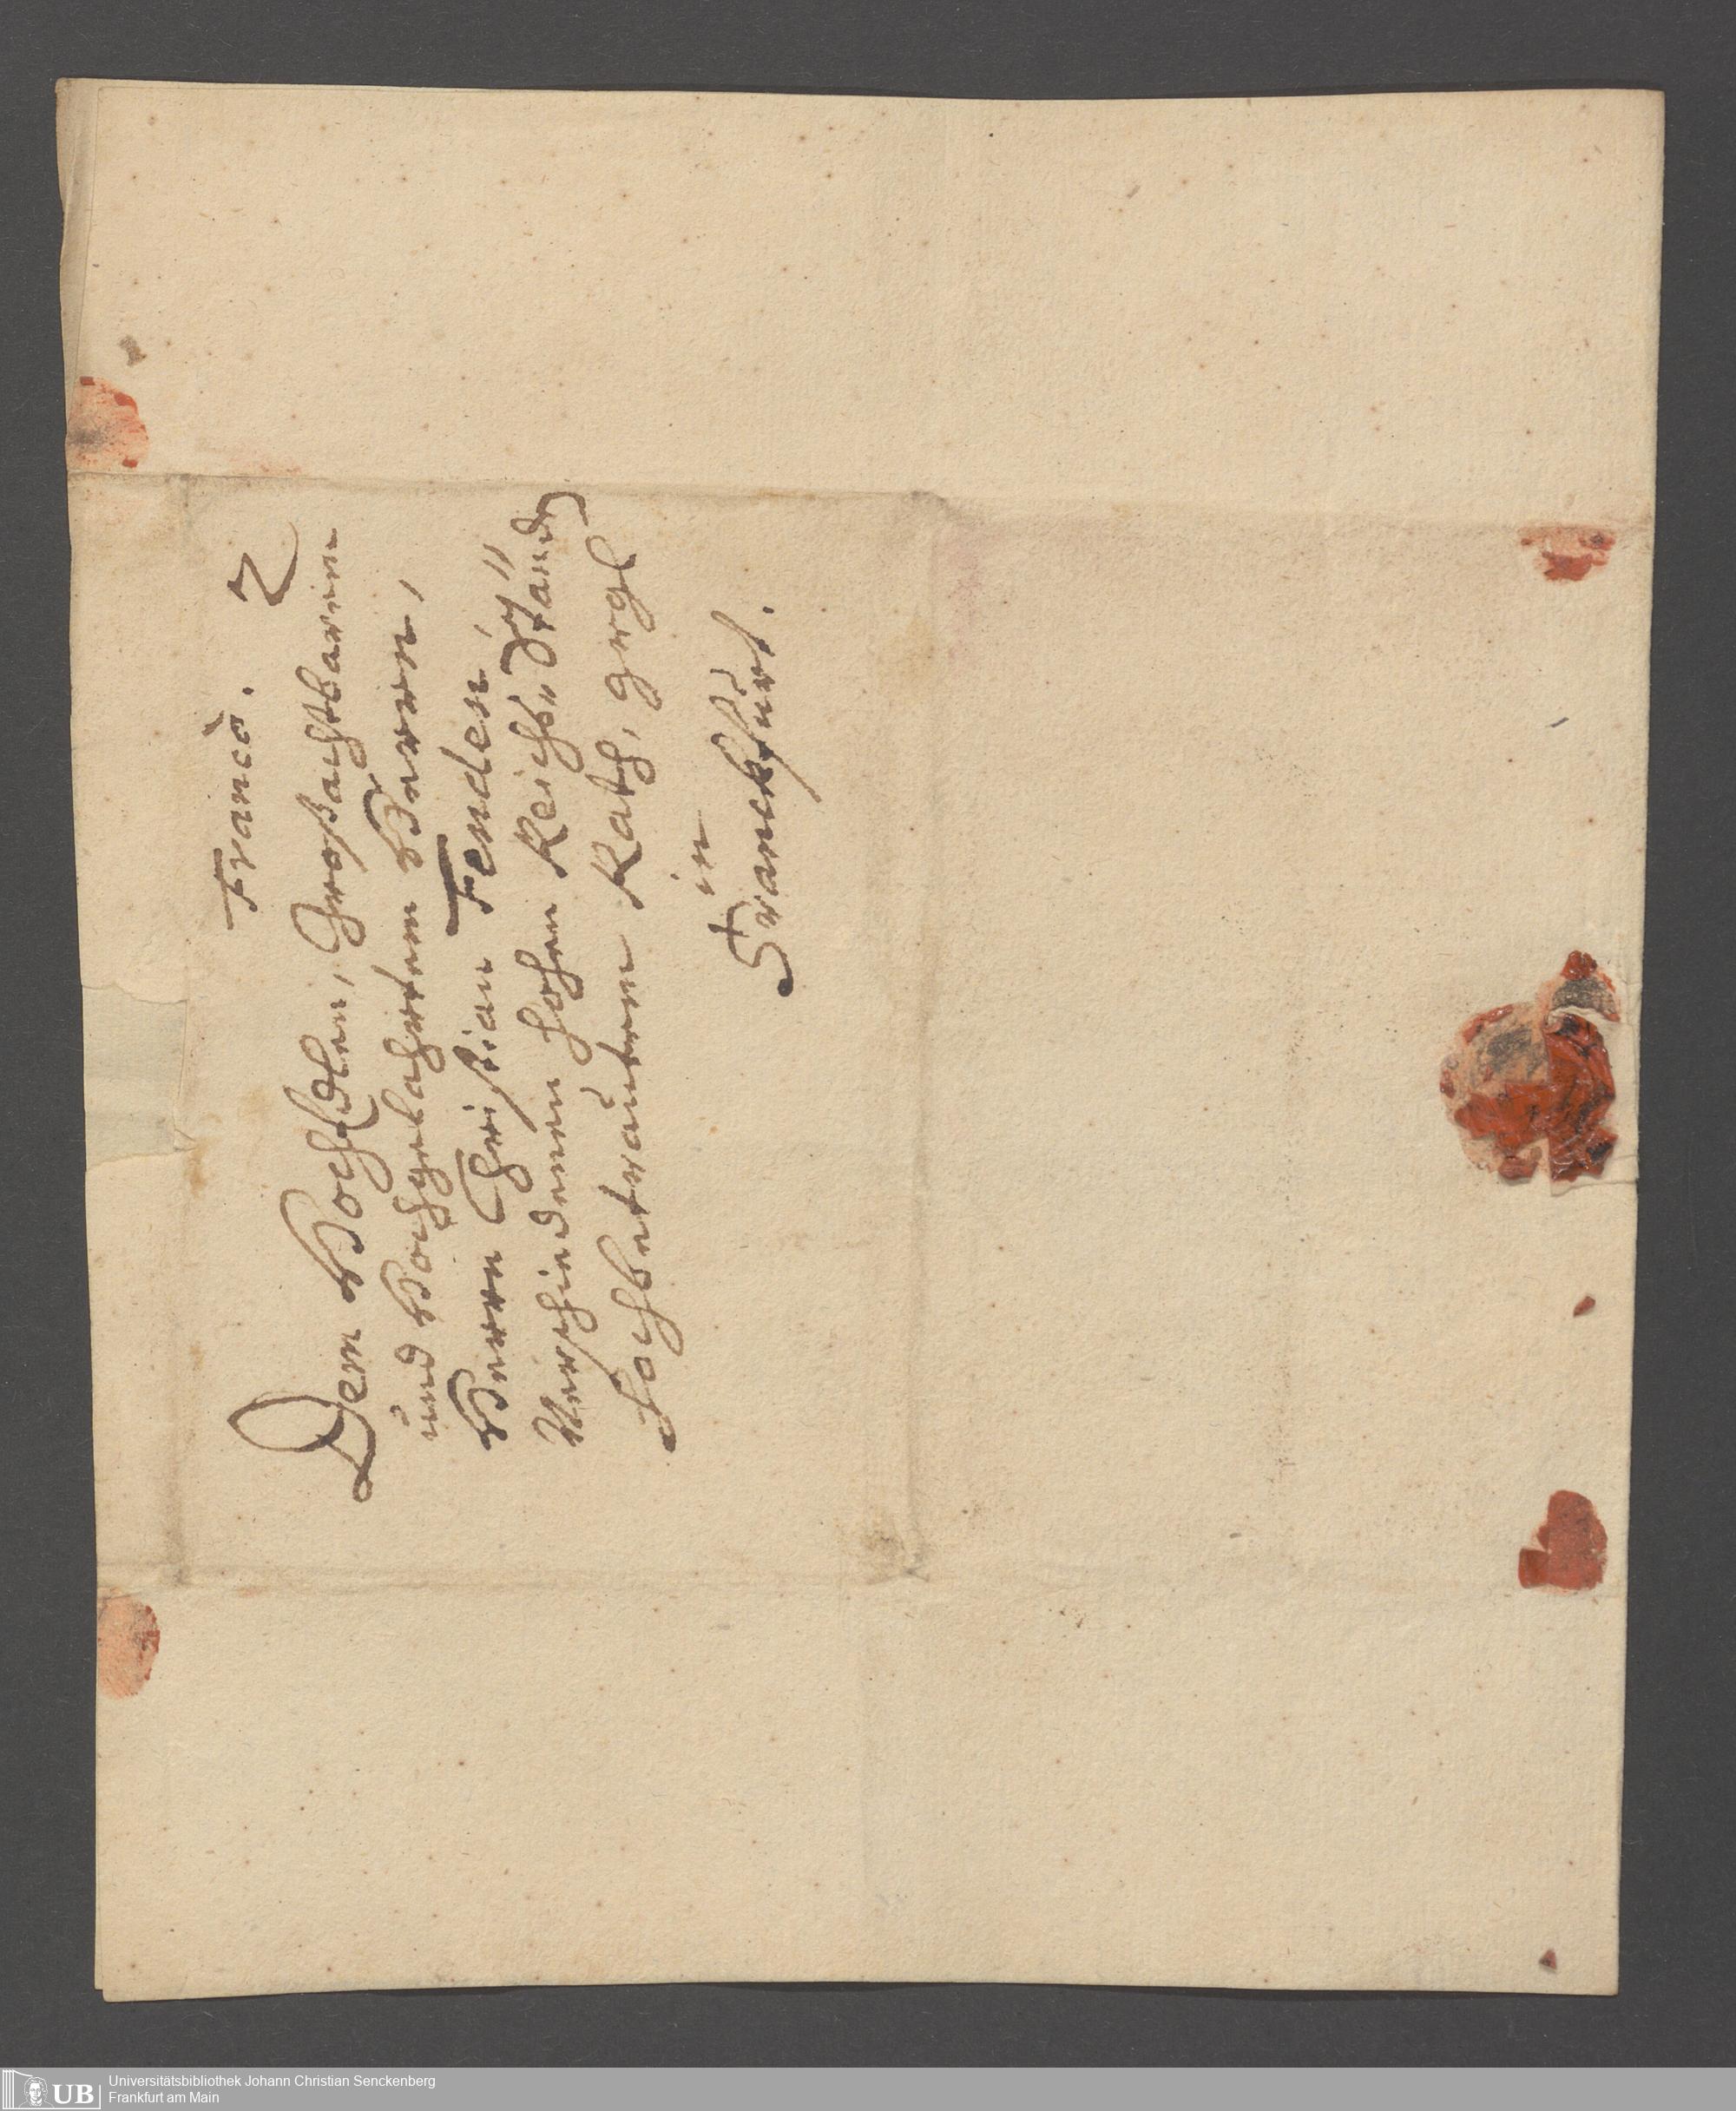 Francò.
2
Dem HochEdlen, Großachtbaren
und Hochgelahrten Herrn,
Herrn Christian Fenden,
Verschiedenen hohen Reichs„Ständen
hochbetrauten Rath,
in
Franckfurt.
UB
Universitätsbibliothek Johann Christian Senckenberg
Frankfurt am Main